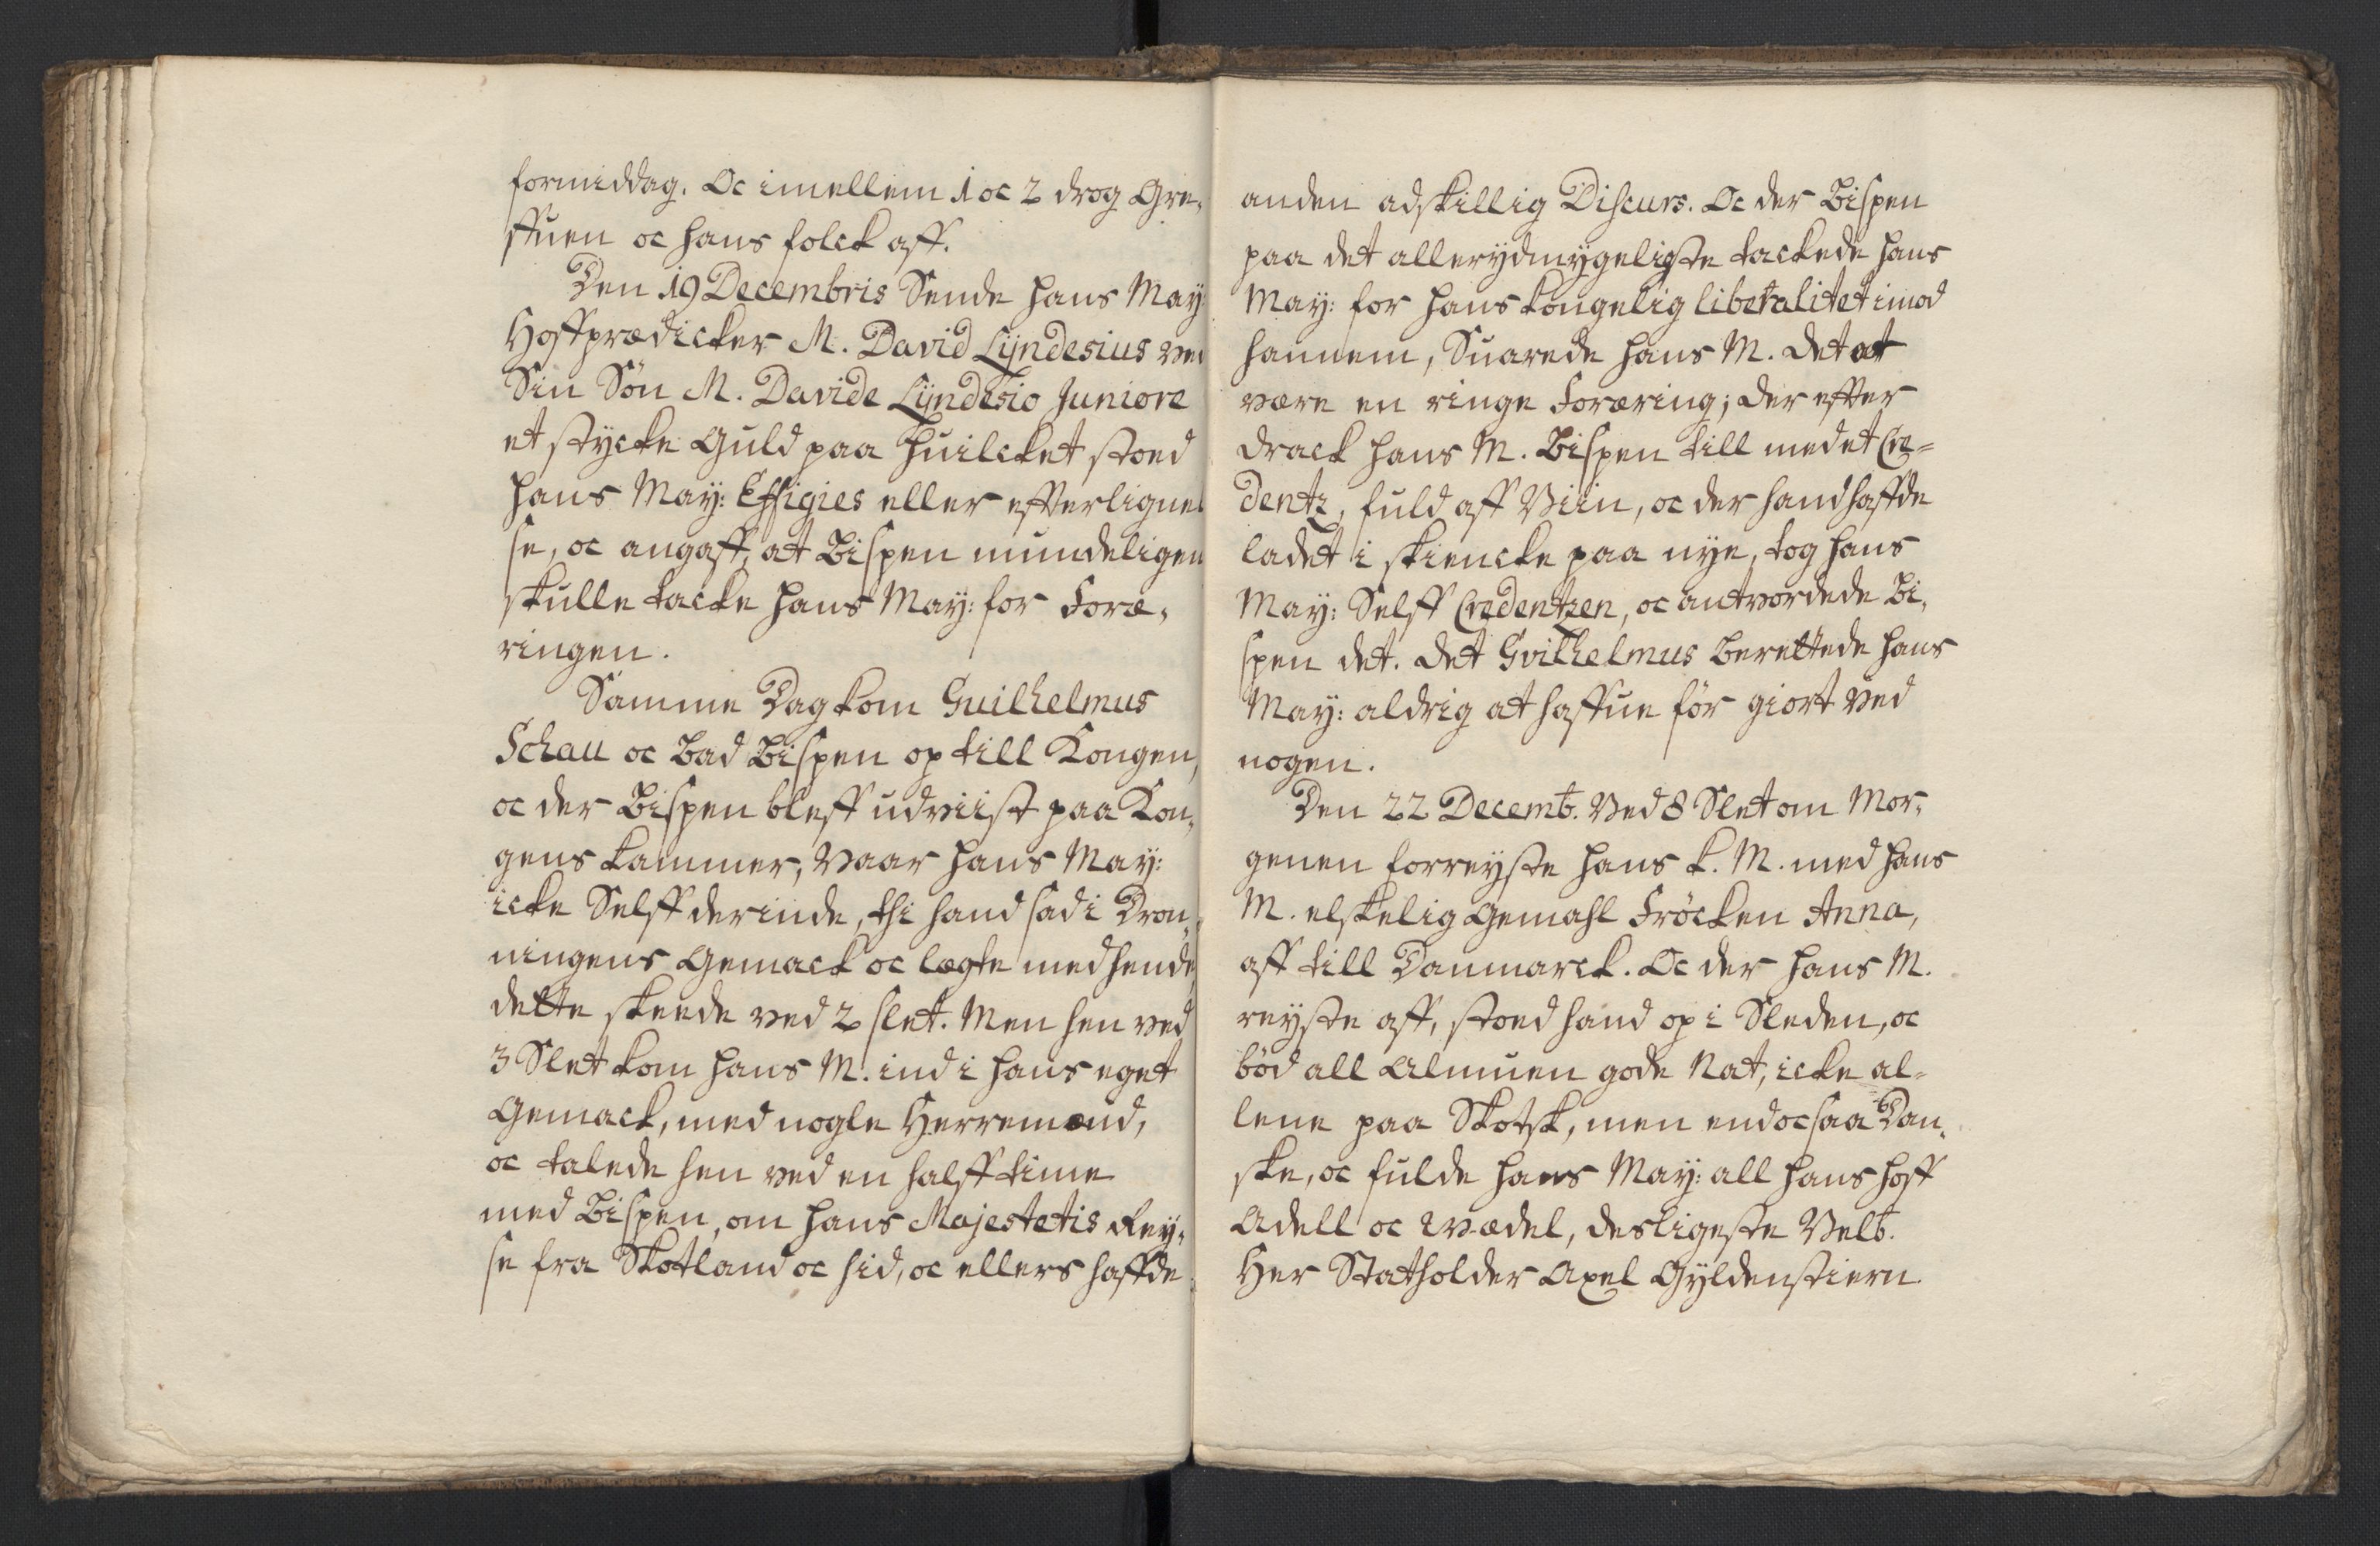 formiddag. Oc imellem 1 oc 2 drog Gre,
ffuen oc hans folck aff.
Den 19 Decembris Sende hans May:
Hoffprædicker M. David Lÿndesius ved
Sin Søn M. Davide Lÿndesio Juniore
et stycke Guld paa huilcket stoed
hans May: Effigies eller efterlignel
se, oc angaff, at Bispen mundeligen
skulle tacke hans May: for Foræ,
ringen.
Samme Dag kom Guilhelmus
Schau oc bad Bispen op till Kongen,
oc der Bispen bleff udviist paa Kon,
gens kammer, vaar hans May:
icke Selff derinde, thi hand sad i Dron,
ningens Gemack oc legte med hende,
dette skeede ved 2 slet. Men hen ved
3 Slet kom hans M. ind i hans eget
Gemack, med nogle Herremænd,
oc talede hen ved en halff time
med Bispen, om hans Majestetis Rey,
se fra Skotland oc hid, oc ellers haffde
anden adskillig Discurs. Oc der Bispen
paa det allerydmygeligste tackede hans
May: for hans kongelig liberalitet imod
hannem, Suarede hans M. det at
være en ringe Foræring; der efter
drack hans M. Bispen till med et Cre=
dentz, fuld aff Viin, oc der hand haffde
ladet i skiencke paa nye, tog hans
May: Selff Credentzen, oc antvordede Bi,
spen det. det Gvilhelmus berettede hans
May: aldrig at haffue før giort ved
nogen.
Den 22 Decemb. Ved 8 Slet om Mor,
genen forreyste hans k. M. med hans
M. elskelig Gemahl Frøcken Anna,
aff till Danmarck. Oc der hans M.
reyste aff, stoed hand op i Sleden, oc
bød all Almuen gode Nat, icke al=
lene paa Skotsk, men endocsaa Dan,
ske, oc fulde hans May: all hans hoff
Adell oc uædel, desligeste Velb.
Her Statholder Axel Gÿldenstiern